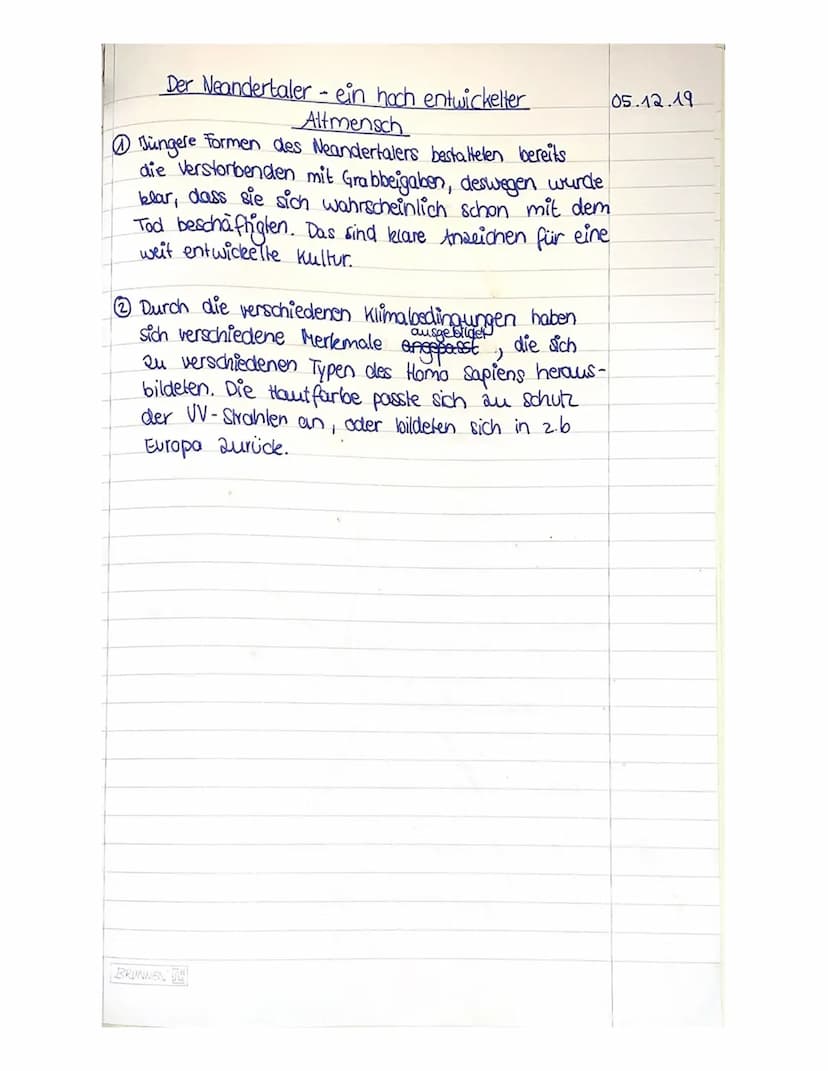 Der Neandertaler - ein hoch entwickelter
Altmensch
05.12.19
① Jüngere Formen des Neandertalers bestatteten bereits
die Verstorbenden mit Grabbeigaben, deswegen wurde
klar, dass sie sich wahrscheinlich schon mit dem
Tod beschäftigten. Das sind klare Anzeichen für eine
weit entwickelte Kultur.
② Durch die verschiedenen Klimabedingungen haben
sich verschiedene Merkmale angepasst ausgebildet, die sich
zu verschiedenen Typen des Homo Sapiens heraus-
bildeten. Die Hautfarbe passte sich zu Schutz
der UV-Strahlen an, oder bildeten sich in z.b
Europa zurück.
BRUNNEN